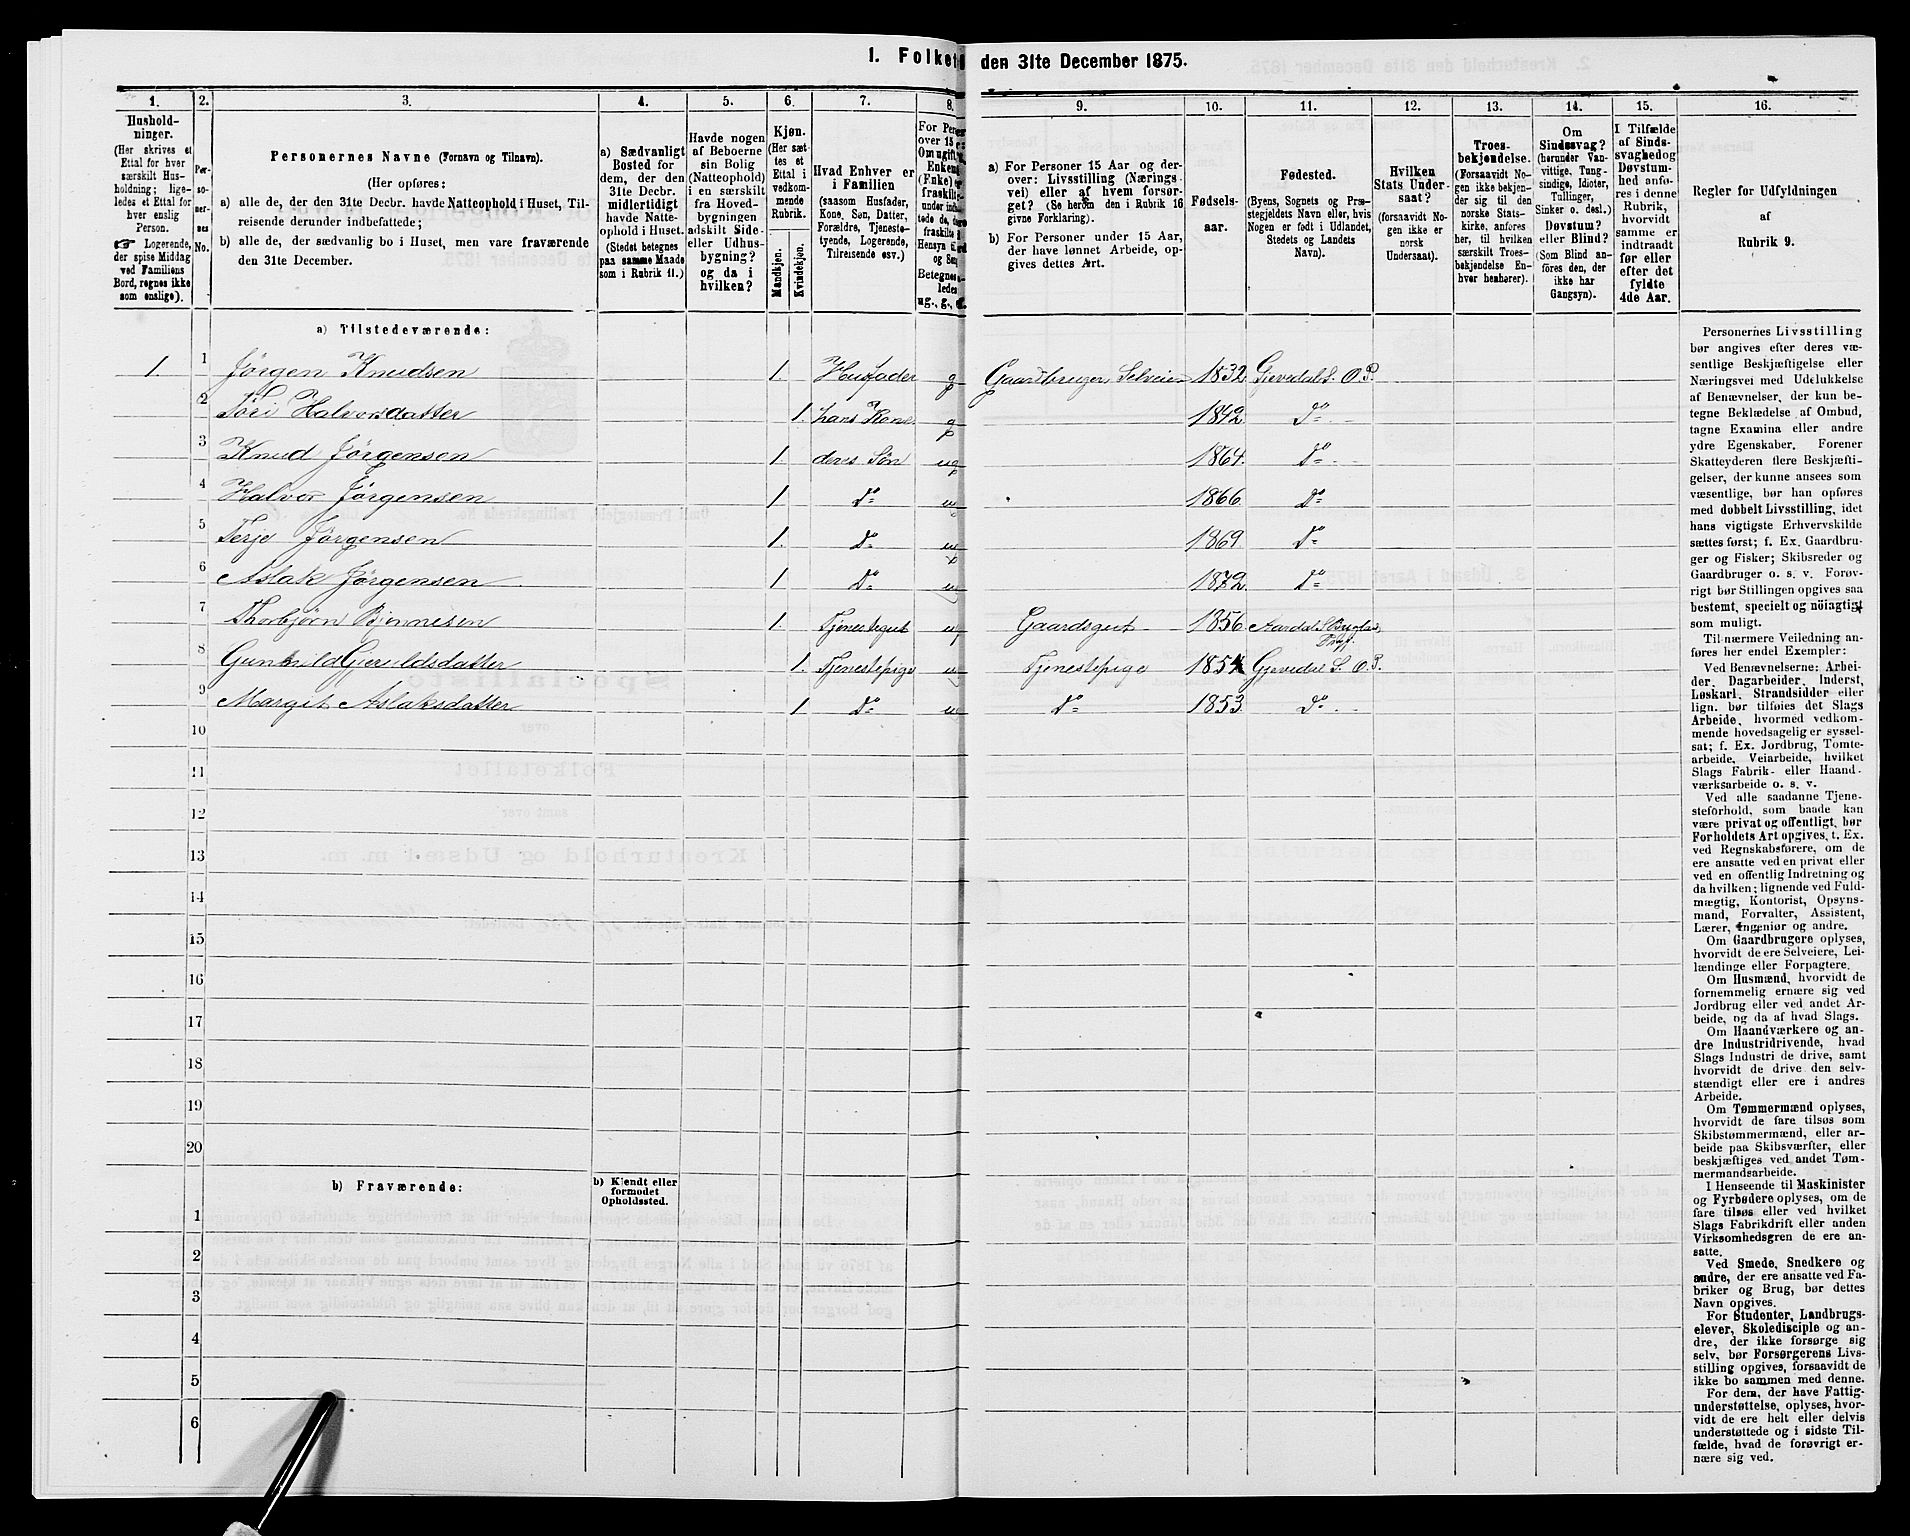 1. Folket
den 31te December 1875.
1.
Hushold-
ninger.
(Her skrives et
Ettal for hver
særskilt Hus-
holdning; lige-
ledes et Ettal for
hver enslig
Person.
☞ Logerende,
der spise Middag
ved Familiens
Bord, regnes ikke
som enslige).
2.
Per-
so-
ner-
nes
No.
3.
Personernes Navne (Fornavn og Tilnavn).
(Her opføres:
a) alle de, der den 31te Decbr. havde Natteophold i Huset, Til-
reisende derunder indbefattede;
b) alle de, der sædvanlig bo i Huset, men vare fraværende
den 31te December.
4.
a) Sædvanligt
Bosted for
dem, der den
31te Decbr.
midlertidigt
havde Natte-
ophold i Huset.
(Stedet betegnes
paa samme Maade
som i Rubrik 11.)
5.
Havde nogen
af Beboerne
sin Bolig
(Natteophold)
i en særskilt
fra Hoved-
bygningen
adskilt Side-
eller Udhus-
bygning?
og da i
hvilken?
6.
Kjøn.
(Her sæt-
tes et
Ettal i
vedkom-
mende
Rubrik.
Mandkjøn.
Kvindekjøn.
7.
Hvad Enhver er
i Familien
(saasom Husfader,
Kone, Søn, Datter,
Forældre, Tjeneste-
tyende, Logerende,
Tilreisende osv.)
8.
For Perso
over 15
Om ugift,
Enkem
(Enke) e
fraskilt
under ind
tede de,
fraskilte
Hensyn t
og Se
Betegnes
ledes
ug., g., e
9.
a) For Personer 15 Aar og der-
over: Livsstilling (Nærings-
vei) eller af hvem forsør-
get? (Se herom den i Rubrik 16
givne Forklaring).
b) For Personer under 15 Aar,
der have lønnet Arbeide, op-
gives dettes Art.
10.
Fødsels-
aar.
11.
Fødested.
(Byens, Sognets og Præ-
stegjeldets Navn eller, hvis
Nogen er født i Udlandet,
Stedets og Landets
Navn).
12.
Hvilken
Stats Under-
saat?
(forsaavidt No-
gen ikke er
norsk
Undersaat).
13.
Troes-
bekjendelse.
(Forsaavidt No-
gen ikke bekjen-
der sig til den
norske Stats-
kirke, anføres
her, til hvilken
særskilt Troes-
bekjendelse En-
hver henhører).
14.
Om
Sindssvag?
(herunder Van-
vittige, Tung-
sindige, Idioter,
Tullinger,
Sinker o. desl.)
Døvstum?
eller Blind?
(Som Blind an-
føres den, der
ikke har
Gangsyn).
15.
I Tilfælde
af Sinds-
svaghed og
Døvstum-
hed anfø-
res i denne
Rubrik,
hvorvidt
samme er
indtraadt
før eller
efter det
fyldte
4de Aar.
16.
Regler for Udfyldningen
af
Rubrik 9.
a) Tilstedeværende:
1. 1 Jørgen Knudsen 1. Husfader g Gaardbruger Selveier 1832 Gjevedal S. O.P.
2 Tori Halvorsdatter 1. hans Kone g 1842 Do
3 Knud Jørgensen 1. deres Søn ug 1864 Do
4 Halvor Jørgensen 1. Do 1866 Do
5 Terje Jørgensen 1. Do 1869 Do
6 Aslak Jørgensen 1. Do 1872 Do
7 Thorbjørn Bjønnesen 1. Tjenestegut Gaardsgut 1856 Aardal S.
8 Gunhild Gjeruldsdatter 1. Tjenestepige Tjenestepige 1854 Gjevedal S. O.P.
9 Margit Aslaksdatter 1 Do Do 1853 Do
10
11
12
13
14
15
16
17
18
19
20
b) Fraværende:
b) Kjendt eller
formodet
Opholdssted.
1
2
3
4
5
6
Personernes Livsstilling
bør angives efter deres væ-
sentlige Beskjæftigelse eller
Næringsvei med Udelukkelse
af Benævnelser, der kun be-
tegne Beklædelse af Ombud,
tagne Examina eller andre
ydre Egenskaber. Forener
Skatteyderen flere Beskjæfti-
gelser, der kunne ansees som
væsentlige, bør han opføres
med dobbelt Livsstilling, idet
hans vigtigste Erhvervskilde
sættes først; f. Ex. Gaardbru-
ger og Fisker; Skibsreder og
Gaardbruger o. s. v. Forøv-
rigt bør Stillingen opgives saa
bestemt, specielt og nöiagtigt
som muligt.
Til nærmere Veiledning an-
føres her endel Exempler:
Ved Benævnelserne: Arbei-
der, Dagarbeider, Inderst,
Løskarl, Strandsidder eller
lign. bør tilføies det Slags
Arbeide, hvormed vedkom-
mende hovedsagelig er syssel-
sat; f. Ex. Jordbrug, Tomte-
arbeide, Veiarbeide, hvilket
Slags Fabrik- eller Haand-
værksarbeide o. s. v.
Ved alle saadanne Tjene-
steforhold, som baade kan
være privat og offentligt, bør
Forholdets Art opgives, t. Ex.
ved Regnskabsførere, om de
ere ansatte ved en privat eller
ved en offentlig Indretning og
da hvilken; lignende ved Fuld-
mægtig, Kontorist, Opsyns-
mand, Forvalter, Assistent,
Lærer, Ingeniør og andre.
Om Gaardbrugere oplyses,
hvorvidt de ere Selveiere, Lei-
lændinge eller Forpagtere.
Om Husmænd, hvorvidt de
fornemmelig ernære sig ved
Jordbrug eller ved andet Ar-
beide, og da af hvad Slags.
Om Haandværkere og an-
dre Industridrivende, hvad
Slags Industri de drive, samt
hvorvidt de drive den selv-
stændigt eller ere i andres
Arbeide.
Om Tømmermænd oplyses,
hvorvidt de fare tilsøs som
Skibstømmermænd, eller ar-
beide paa Skibsværfter, eller
beskjæftiges ved andet Tøm-
mermandsarbeide.
I Henseende til Maskinister
og Fyrbødere oplyses, om de
fare tilsøs eller ved hvilket
Slags Fabrikdrift eller anden
Virksomhedsgren de ere an-
satte.
Ved Smede, Snedkere og
andre, der ere ansatte ved Fa-
briker og Brug, bør dettes
Navn opgives.
For Studenter, Landbrugs-
elever, Skoledisciple og an-
dre, der ikke forsørge sig
selv, bør Forsørgerens Livs-
stilling opgives, forsaavidt de
ikke bo sammen med denne.
For dem, der have Fattig-
understøttelse, oplyses, hvor-
vidt de ere helt eller delvis
understøttede og i sidste Til-
fælde, hvad de forøvrigt er-
nære sig ved.